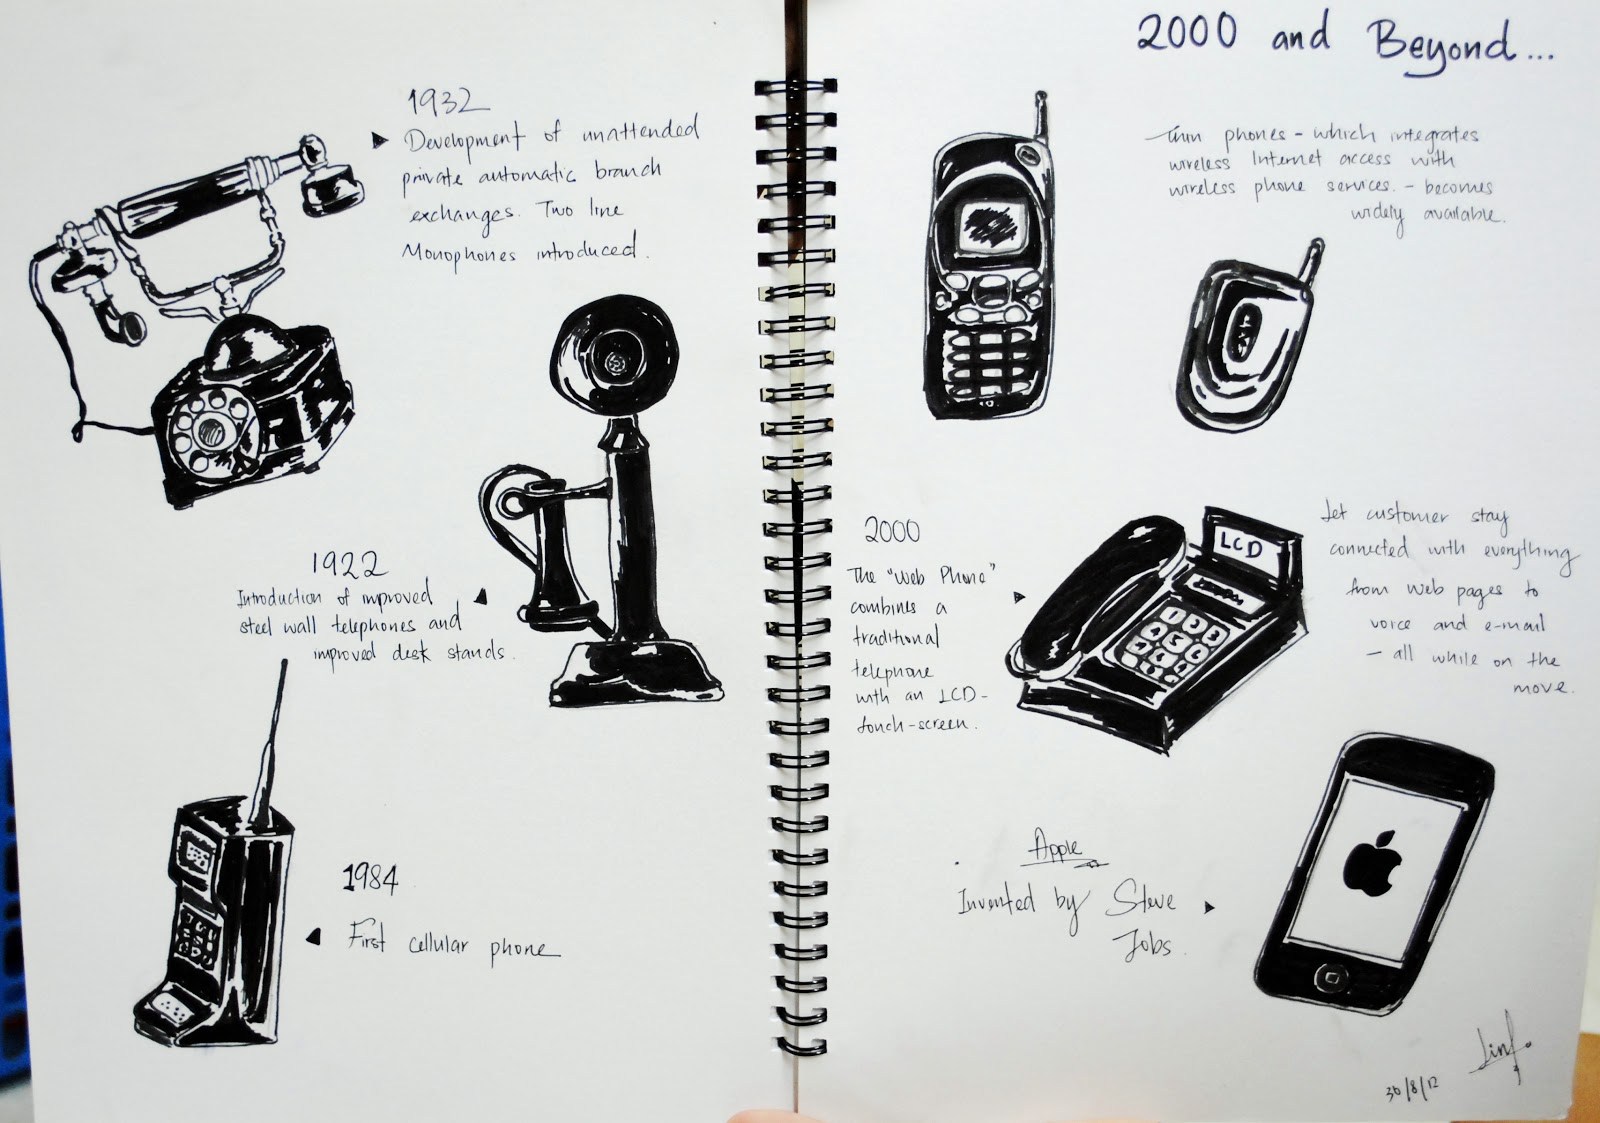 1932
Development of unattended
private automatic branch
exchanges. Two line
Monophones introduced.
1922
Introduction of improved
steel wall telephones and
improved desk stands.
1984
First cellular phone
2000 and Beyond...
phones - which integrates
wireless Internet access with
wireless phone services. - becomes
widely available.
2000
The "Web Phone"
combines a
traditional
telephone
with an LCD-
touch-screen.
LCD
1 2 3
4 5 6
Let customer stay
connected with everything
from web pages to
voice and e-mail
- all while on the
move.
Apple
Invented by Steve
Jobs.
30/8/12